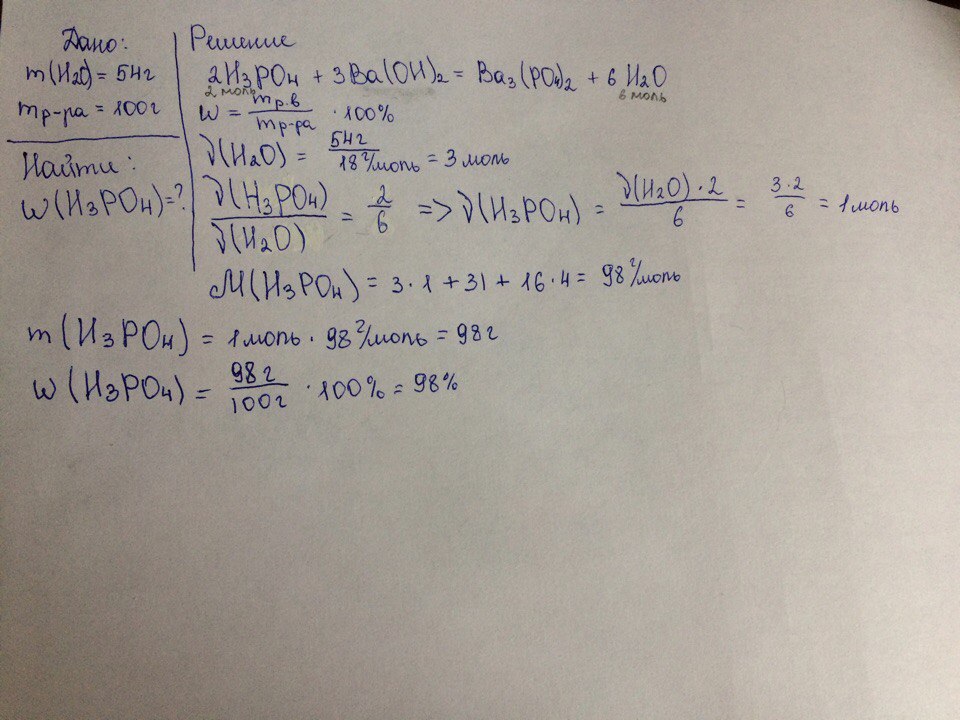 Дано:
m(H₂O) = 54г
mр-ра = 100г
Найти:
w(H₃PO₄)=?
Решение
2H₃PO₄ + 3Ba(OH)₂ = Ba₃(PO₄)₂ + 6H₂O
2 моль 6 моль
w = mр.в/mр-ра · 100%
ν(H₂O) = 54г/18г/моль = 3 моль
ν(H₃PO₄)/ν(H₂O) = 2/6 => ν(H₃PO₄) = ν(H₂O)·2/6 = 3·2/6 = 1моль
M(H₃PO₄) = 3·1 + 31 + 16·4 = 98г/моль
m(H₃PO₄) = 1моль · 98г/моль = 98г
w(H₃PO₄) = 98г/100г · 100% = 98%